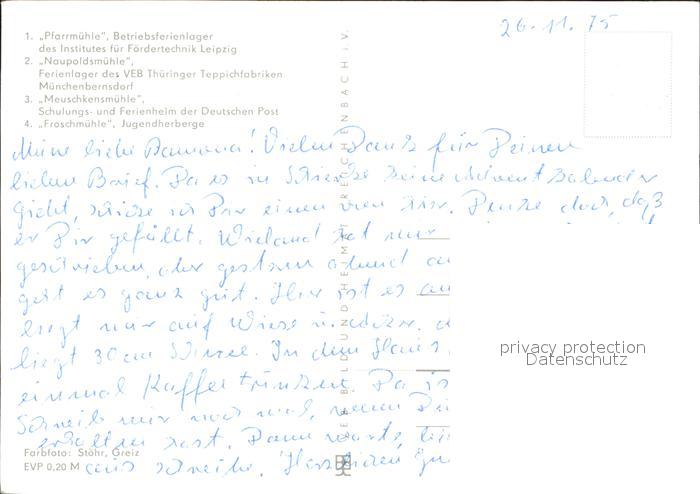 26.11.75
1. „Pfarrmühle“, Betriebsferienlager
des Institutes für Fördertechnik Leipzig
2. „Naupoldsmühle“,
Ferienlager des VEB Thüringer Teppichfabriken
Münchenbernsdorf
3. „Meuschkensmühle“,
Schulungs- und Ferienheim der Deutschen Post
4. „Froschmühle“, Jugendherberge
Meine liebe Ramona! Vielen Dank für Deinen
lieben Brief. Da es in Schierke keine Adventskalender
gibt, schicke ich Dir einen von hier. Denke doch, daß
er Dir gefällt. Wieland hat mir
geschrieben, aber gestern abend
geht es ganz gut. Hier ist es
liegt nur auf Wiese
liegt 30 cm Schnee. In dem Haus
einmal Kaffee trinken. Da is
Schreib mir noch mal, wenn Du
erhalten hast. Dann warte,
aus schreibe. Herzlichen
Farbfoto: Stöhr, Greiz
EVP 0,20 M
BILD UND HEIMAT REICHENBACH i. V.
privacy protection
Datenschutz